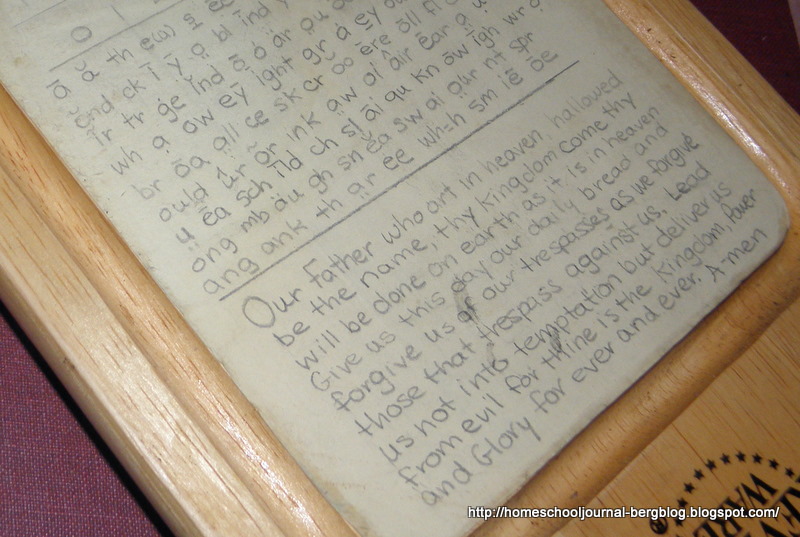 O
ā ă th ew
ond ck ī ў
īr tr ge īnd
wh a ow ey ight gr a ey
br ōa all ce sk cr
ould ûr ōr ink aw oi âir ēar
ēa sch īld ch sl āi qu kn ōw īgh wr
ong mb au gh sn ĕa sw ai our nt spr
ang ank th ar ee wh=h sm iē ōe
Our Father who art in heaven, hallowed
be the name, thy Kingdom come thy
will be done on earth as it is in heaven
Give us this day our daily bread and
forgive us our trespasses as we forgive
those that trespass against us. Lead
us not into temptation but deliver us
from evil for thine is the Kingdom, Power
and Glory for ever and ever. A-men
REVERE
WARE
®
http://homeschooljournal-bergblog.blogspot.com/